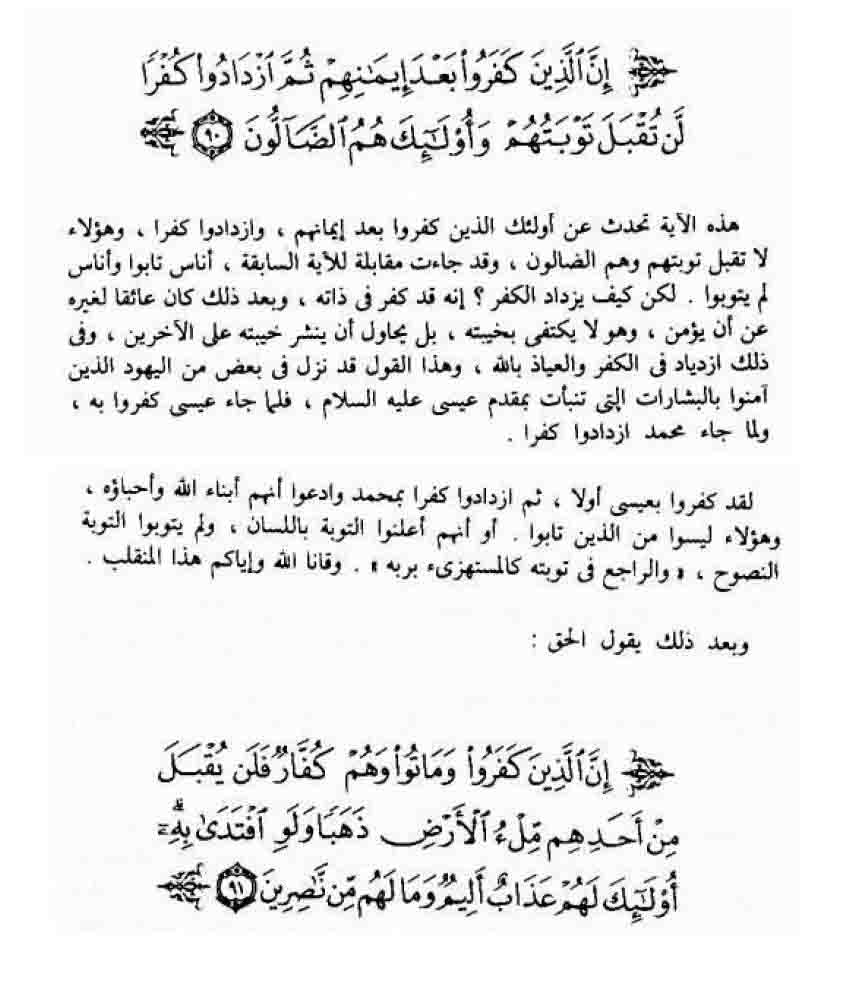 إِنَّ ٱلَّذِينَ كَفَرُواْ بَعْدَ إِيمَٰنِهِمْ ثُمَّ ٱزْدَادُواْ كُفْرًا
لَّن تُقْبَلَ تَوْبَتُهُمْ وَأُوْلَٰٓئِكَ هُمُ ٱلضَّآلُّونَ ٩٠
هذه الآية تحدث عن أولئك الذين كفروا بعد إيمانهم ، وازدادوا كفرا ، وهؤلاء
لا تقبل توبتهم وهم الضالون ، وقد جاءت مقابلة للآية السابقة ، أناس تابوا وأناس
لم يتوبوا . لكن كيف يزداد الكفر ؟ إنه قد كفر فى ذاته ، وبعد ذلك كان عائقا لغيره
عن أن يؤمن ، وهو لا يكتفى بخيبته ، بل يحاول أن ينشر خيبته على الآخرين ، وفى
ذلك ازدياد فى الكفر والعياذ بالله ، وهذا القول قد نزل فى بعض من اليهود الذين
آمنوا بالبشارات التى تنبأت بمقدم عيسى عليه السلام ، فلما جاء عيسى كفروا به ،
ولما جاء محمد ازدادوا كفرا .
لقد كفروا بعيسى أولا ، ثم ازدادوا كفرا بمحمد وادعوا أنهم أبناء الله وأحباؤه ،
وهؤلاء ليسوا من الذين تابوا . أو أنهم أعلنوا التوبة باللسان ، ولم يتوبوا التوبة
النصوح ، « والراجع فى توبته كالمستهزىء بربه » . وقانا الله وإياكم هذا المنقلب .
وبعد ذلك يقول الحق :
إِنَّ ٱلَّذِينَ كَفَرُواْ وَمَاتُواْ وَهُمْ كُفَّارٌ فَلَن يُقْبَلَ
مِنْ أَحَدِهِم مِّلْءُ ٱلْأَرْضِ ذَهَبًا وَلَوِ ٱفْتَدَىٰ بِهِۦٓ
أُوْلَٰٓئِكَ لَهُمْ عَذَابٌ أَلِيمٌ وَمَا لَهُم مِّن نَّٰصِرِينَ ٩١